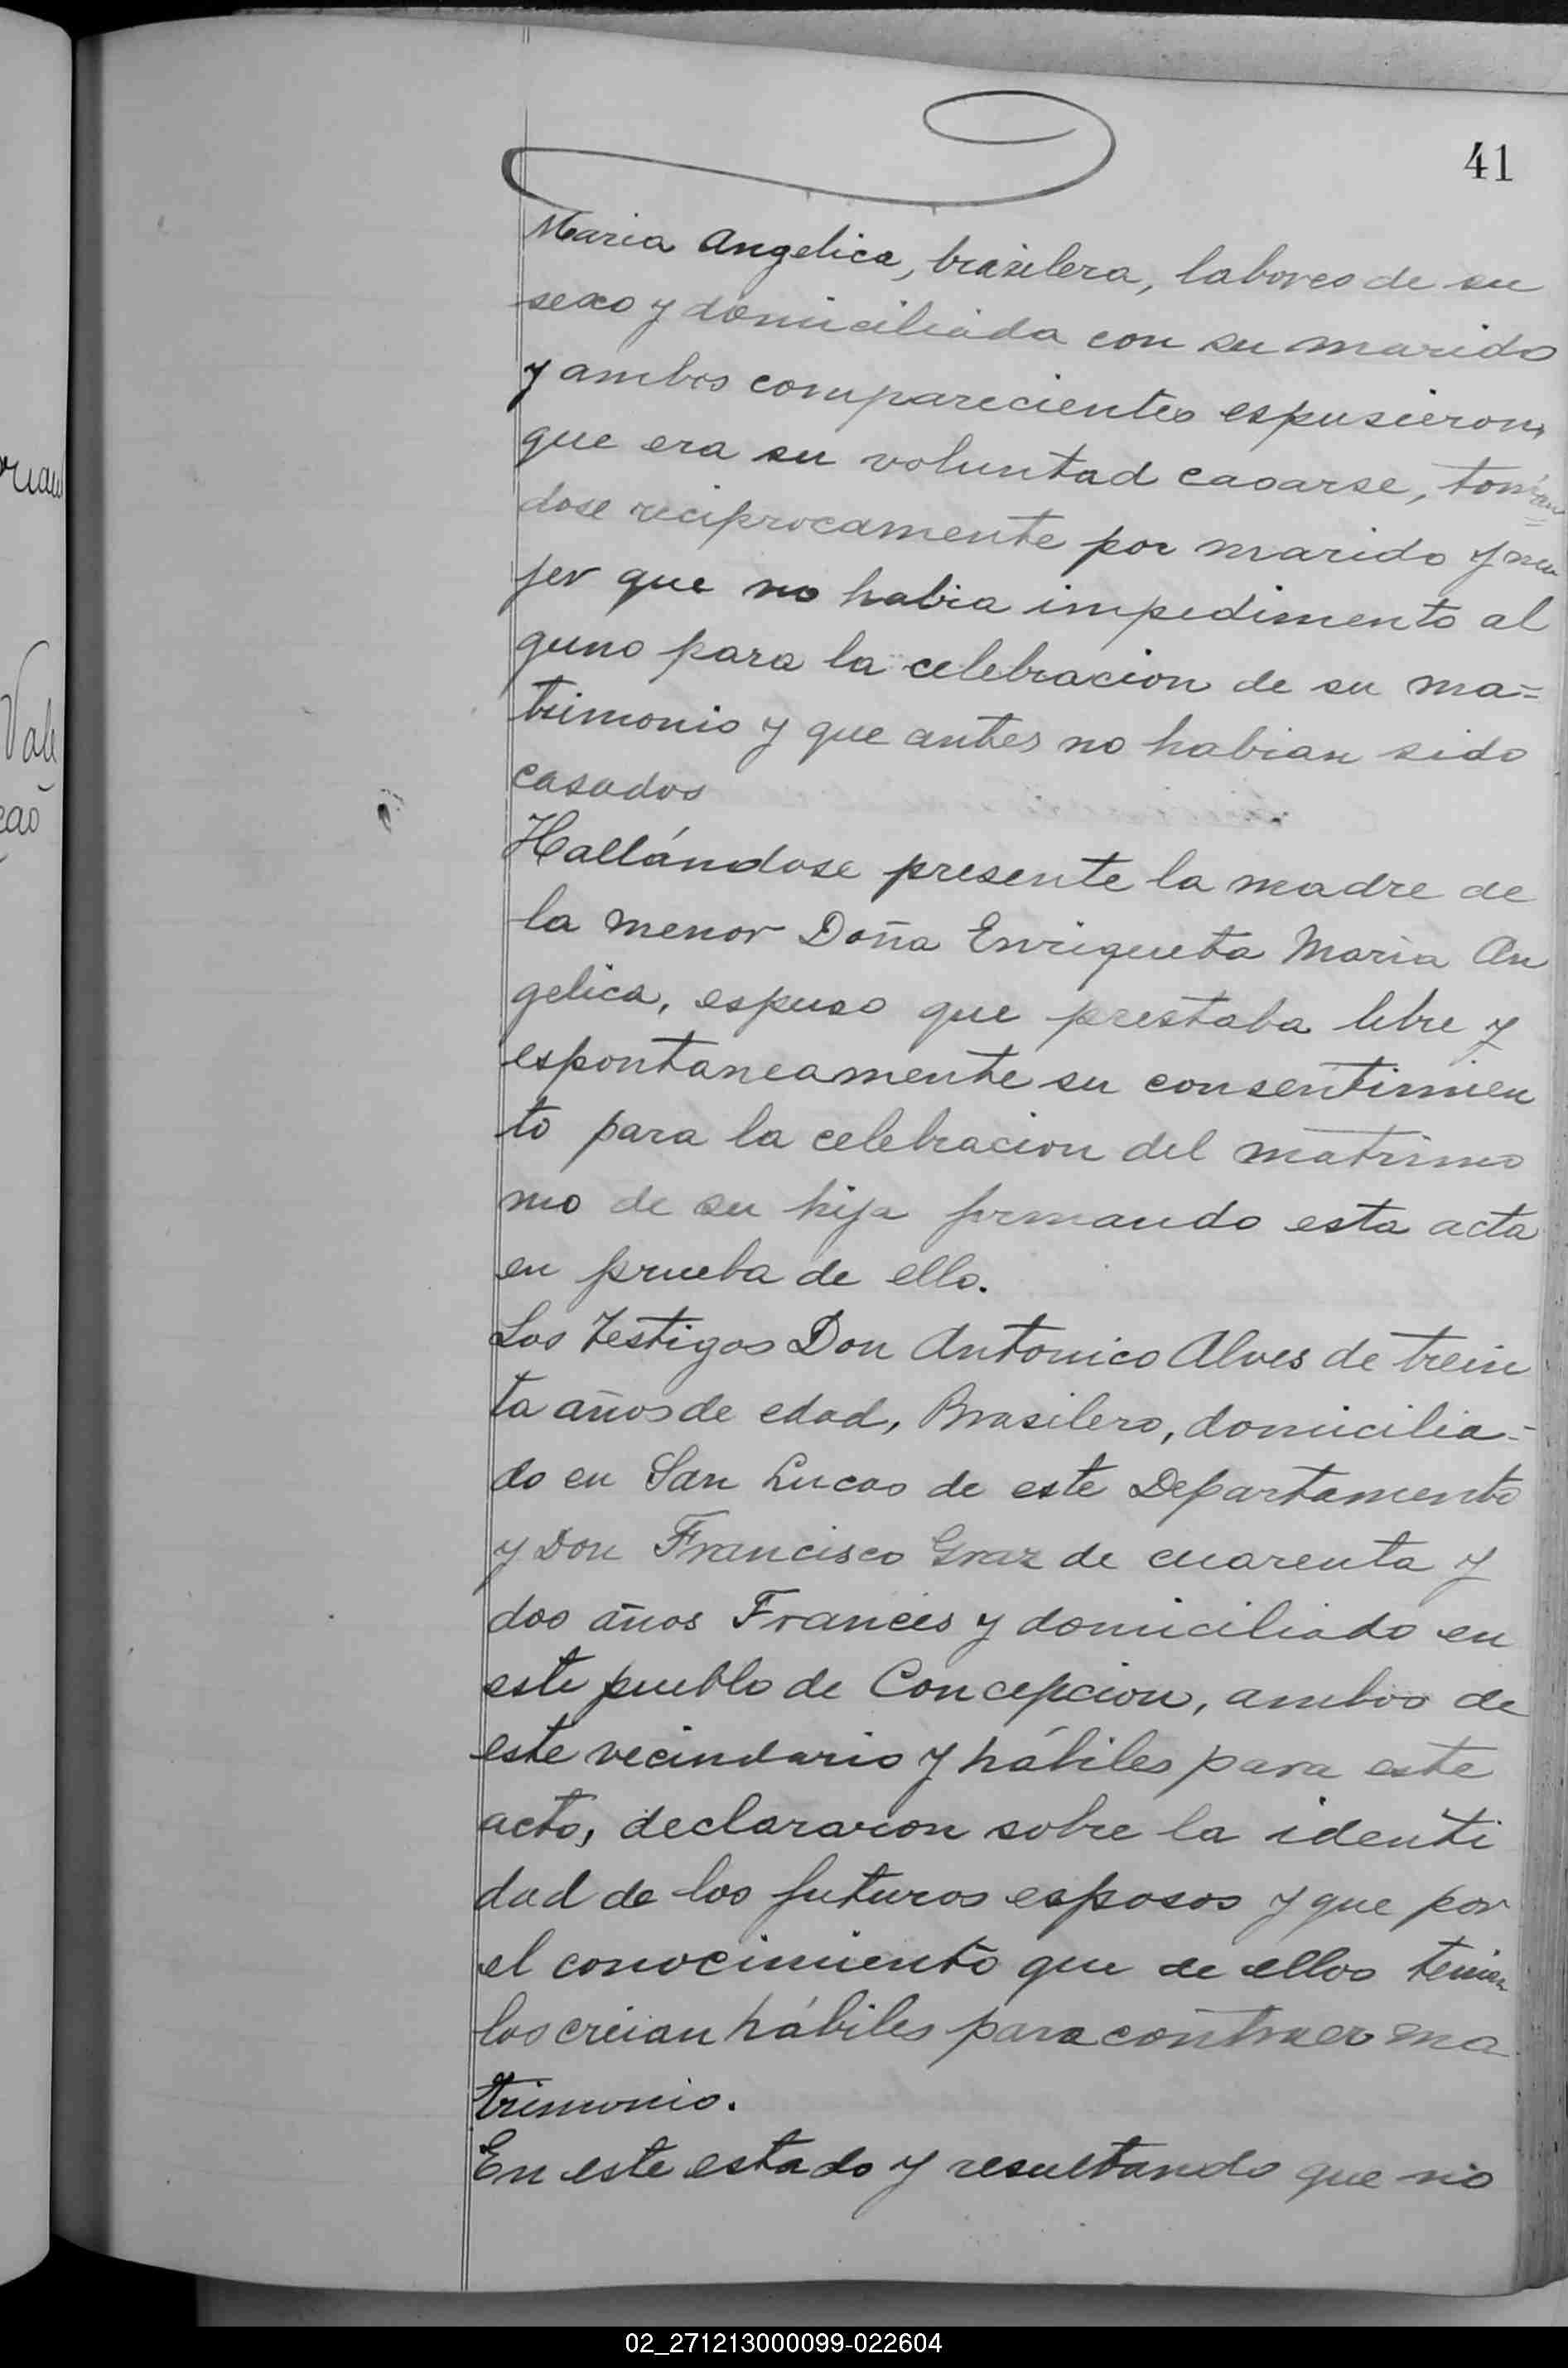 41
Maria Angelica, brasilera, labores de su
sexo y domiciliada con su marido
y ambos comparecientes espusieron,
que era su voluntad casarse, tomán=
dose reciprocamente por marido y mu
jer que no habia impedimento al
guno para la celebracion de su ma=
trimonio y que antes no habian sido
casados
Hallándose presente la madre de
la menor Doña Enriqueta Maria An
gelica, espuso que prestaba libre y
espontaneamente su consentimien
to para la celebracion del matrimo
nio de su hija firmando esta acta
en prueba de ello.
Los Testigos Don Antonico Alves de trein
ta años de edad, Brasilero, domicilia=
do en San Lucas de este Departamento
y Don Francisco Graz de cuarenta y
dos años Francés y domiciliado en
este pueblo de Concepcion, ambos de
este vecindario y hábiles para este
acto, declararon sobre la identi
dad de los futuros esposos y que por
el conocimiento que de ellos tenian
los creian hábiles para contraer ma
trimonio.
En este estado y resultando que no
02_271213000099-022604